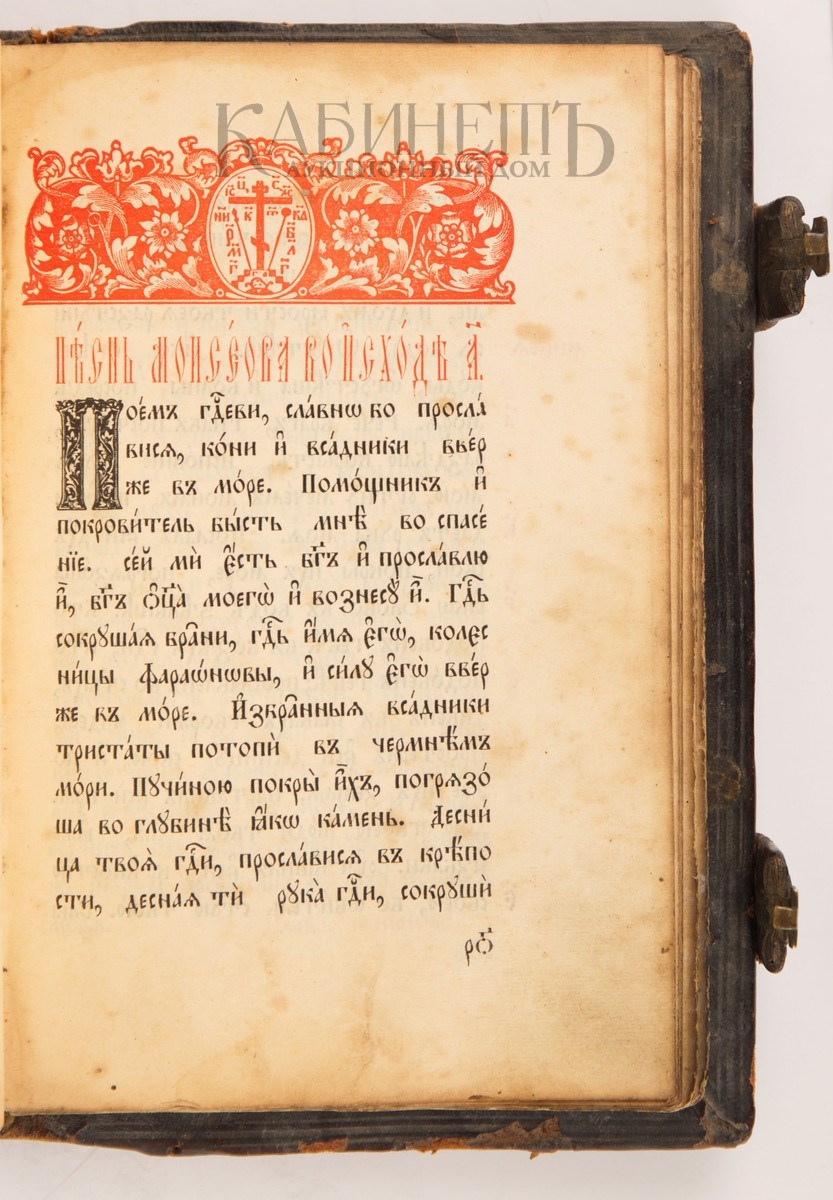 КАБИНЕТЪ
АУКЦИОННЫЙ ДОМ
І҃С Ц҃ С҃ Х҃С
НИ К҃ Т҃ КА
Р҃ Б҃
М҃ Л҃
Г҃ Г҃
Г҃ А҃
Пѣ́снь моисе́ова во и҆схо́дѣ а҃.
Пое́мъ гдⷭ҇еви, сла́внѡ бо просла́
вися, ко́ни и҆ вса́дники вве́р
же въ мо́ре. Помо́щникъ и҆
покрови́тель бы́сть мнѣ̀ во спасе́
нїе. се́й мѝ є҆́сть бг҃ъ и҆ просла́влю
и҆̀, бг҃ъ ѻ҆ц҃а̀ моегѡ̀ и҆ вознесꙋ̀ и҆̀. Гдⷭ҇ь
сокрꙋша́ѧ бра̑ни, гдⷭ҇ь и҆́мѧ є҆гѡ̀, колес
ни́цы фараѡ́нѡвы, и҆ си́лꙋ є҆гѡ̀ вве́р
же въ мо́ре. И҆збра̑нныѧ вса́дники
триста́ты потопѝ въ чермнѣ́мъ
мо́ри. Пꙋчи́ною покры̀ и҆̀хъ, погрѧзо́
ша во глꙋбинѣ̀ ꙗ҆́кѡ ка́мень. Десни́
ца твоѧ̀ гдⷭ҇и, просла́висѧ въ крѣ́по
сти, десна́ѧ тѝ рꙋка̀ гдⷭ҇и, сокрꙋшѝ
ро҃